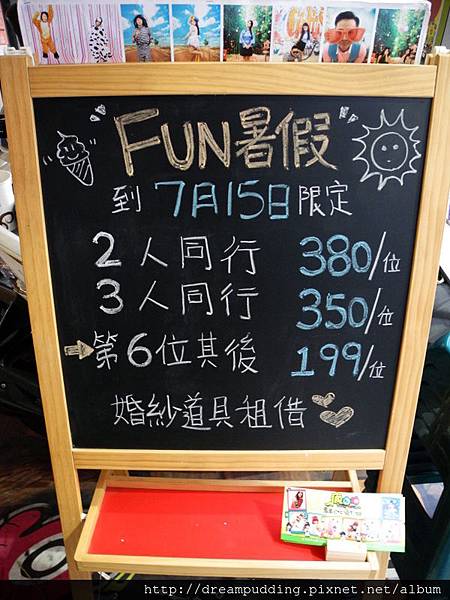 FUN暑假
到 7月15日 限定
2人同行 380/位
3人同行 350/位
第6位其後 199/位
婚紗道具租借
http://dreampudding.pixnet.net/album